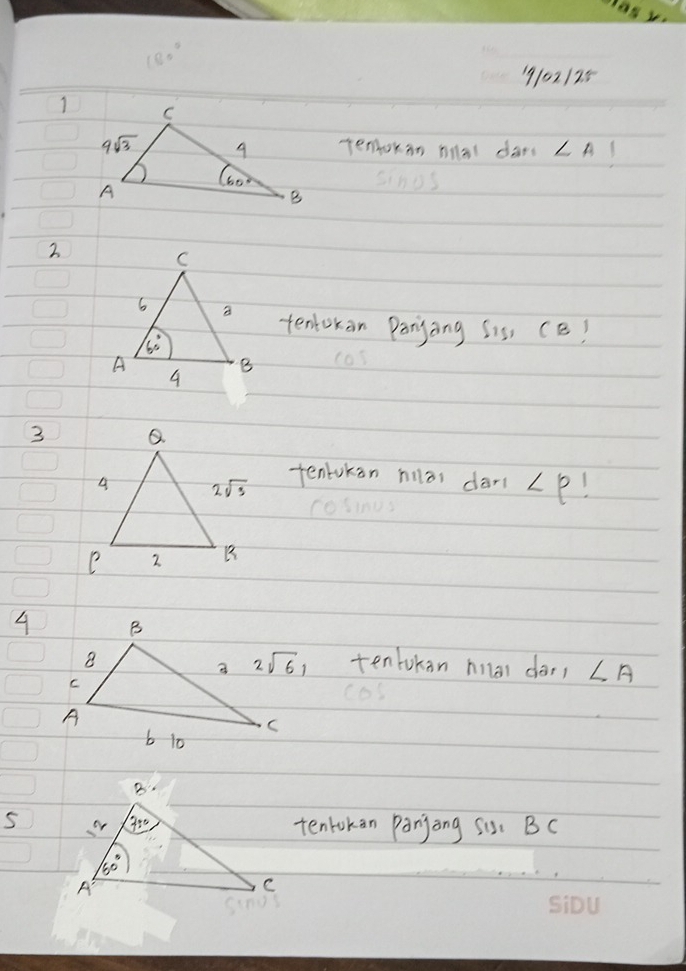 las x
180°
No.
Date.
19/02/25
1
C
4√3
4
tentukan nilai dari ∠A!
60°
A
B
sinus
2
C
6
a
tentukan Panjang sisi CB!
60°
A
B
cos
4
3
Q
4
2√3
tentukan nilai dari ∠P!
cosinus
P
2
R
4
B
8
a 2√61
tentukan nilai dari ∠A
c
cos
A
C
b 10
5
B
12
75°
tentukan Panjang sisi BC
60°
A
C
sinus
SiDU